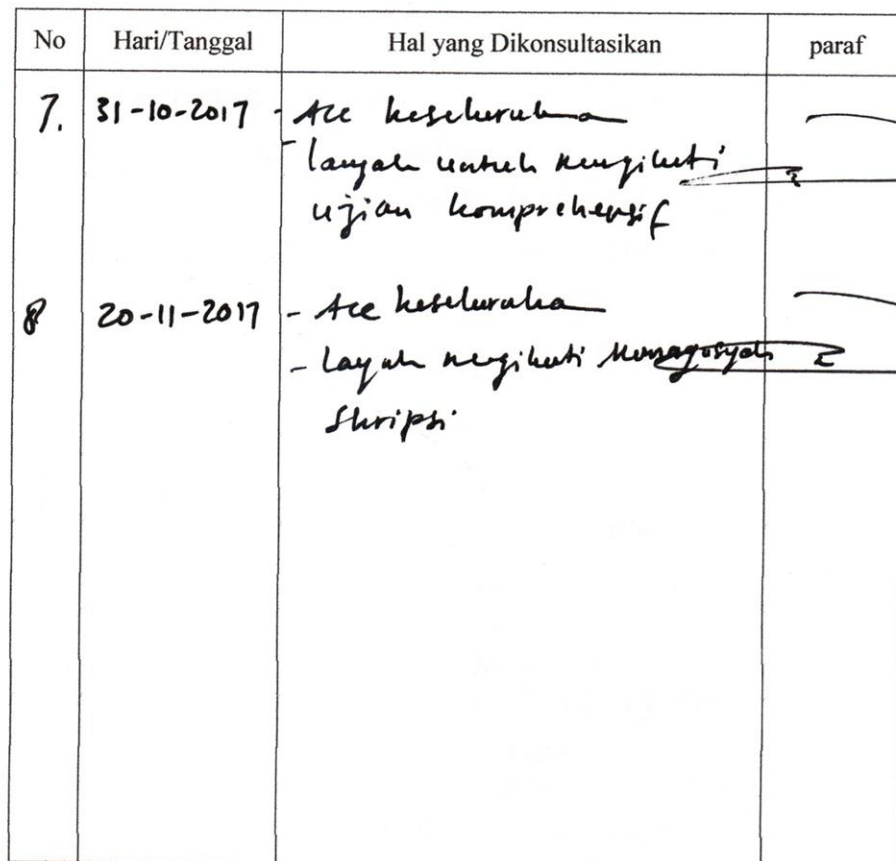 No Hari/Tanggal Hal yang Dikonsultasikan paraf
7. 31-10-2017 - Acc keseluruhan
- layak untuk mengikuti
ujian komprehensif
8 20-11-2017 - Acc keseluruhan
- layak mengikuti Munaqosyah
Skripsi